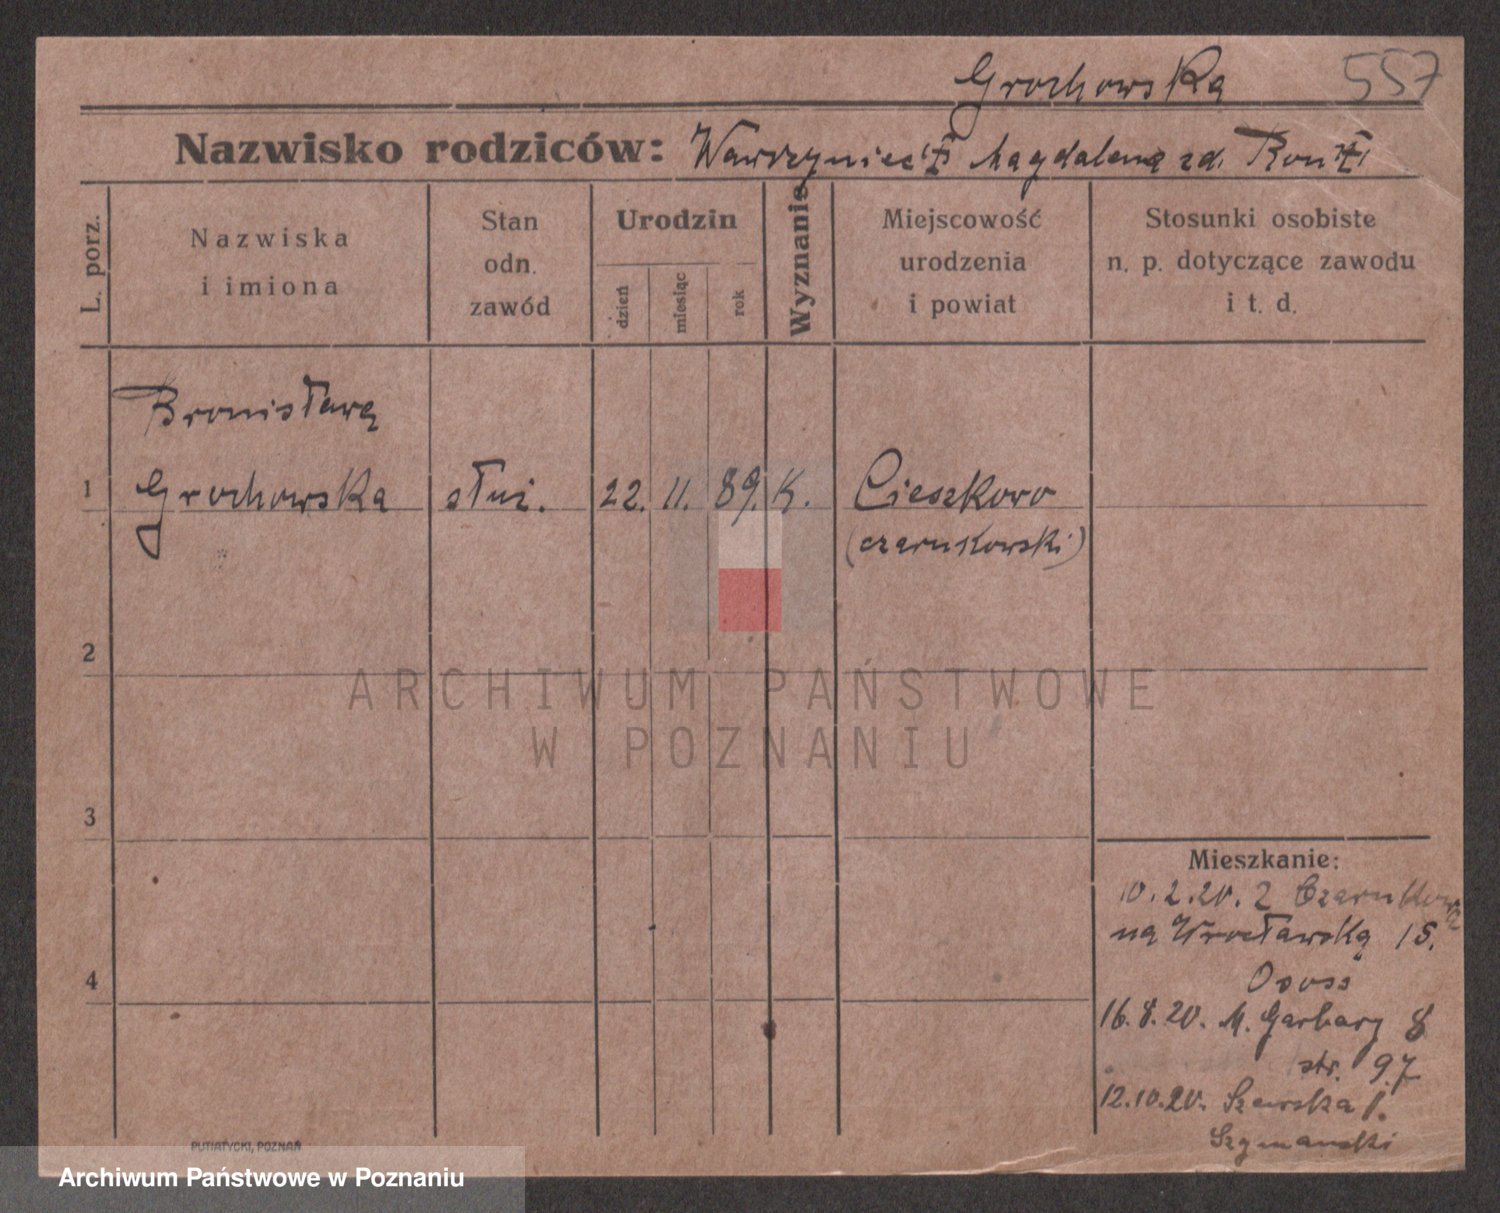 Grochowska 557
Nazwisko rodziców: Wawrzyniec Magdalena zd.
L. porz.
Nazwiska
i imiona
Stan
odn.
zawód
Urodzin
dzień
miesiąc
rok
Wyznanie
Miejscowość
urodzenia
i powiat
Stosunki osobiste
n. p. dotyczące zawodu
i t. d.
Bronisława
1 Grochowska służ. 22. 11. 89. K. Cieszkowo
(czarnkowski)
2
3
4
Mieszkanie:
10.2.20. z Czarnkowa
na Wrocławską 15.
16.8.20. M. Garbary 8
str. 97
12.10.20. Szewska 1.
Szymanski
PUTIATYCKI, POZNAŃ
ARCHIWUM PAŃSTWOWE
W POZNANIU
Archiwum Państwowe w Poznaniu